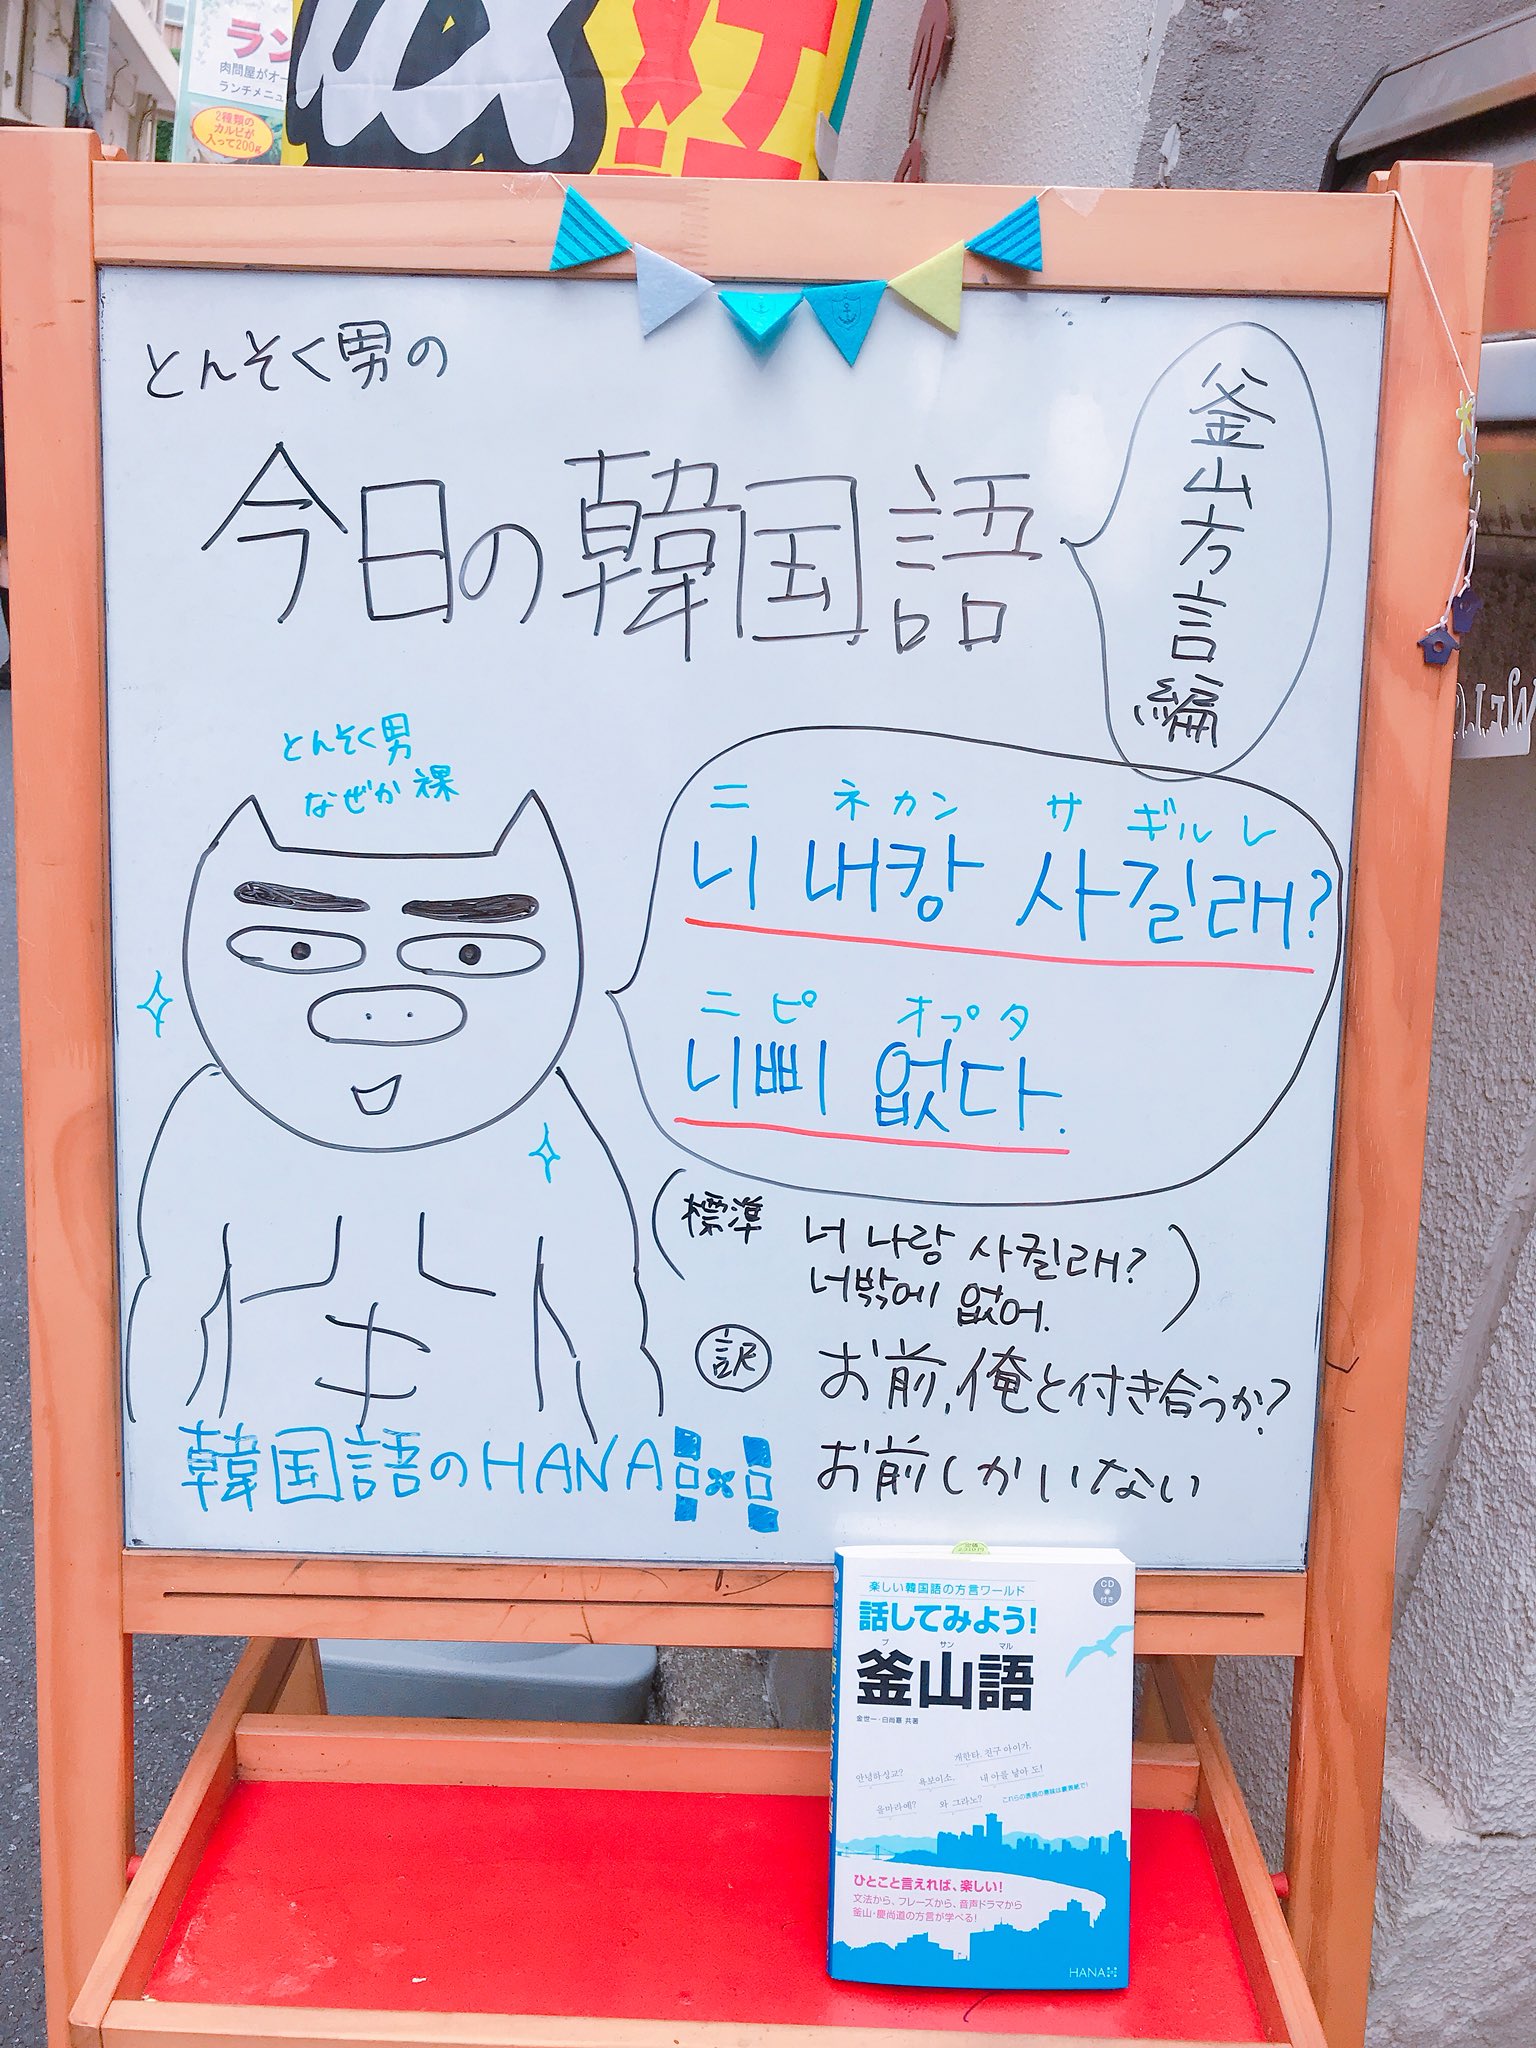 ラン
肉問屋がオー
ランチメニュ
2種類の
カルビが
入って200g
とんそく男の
今日の韓国語
釜山方言編
とんそく男
なぜか裸
ニ ネカン サギルレ
니 내캉 사길래?
ニピ オプタ
니삐 없다.
(標準 너 나랑 사귈래?
너밖에 없어.)
訳 お前、俺と付き合うか?
お前しかいない
韓国語のHANA
楽しい韓国語の方言ワールド
CD付き
話してみよう!
プ サン マル
釜山語
金世一・白尚憙 共著
개한타, 친구 아이가.
안녕하싱교? 욕보이소. 내 아를 낳아 도!
을마라예? 와 그라노? これらの表現の意味は裏表紙で!
ひとこと言えれば、楽しい!
文法から、フレーズから、音声ドラマから
釜山・慶尚道の方言が学べる!
HANA